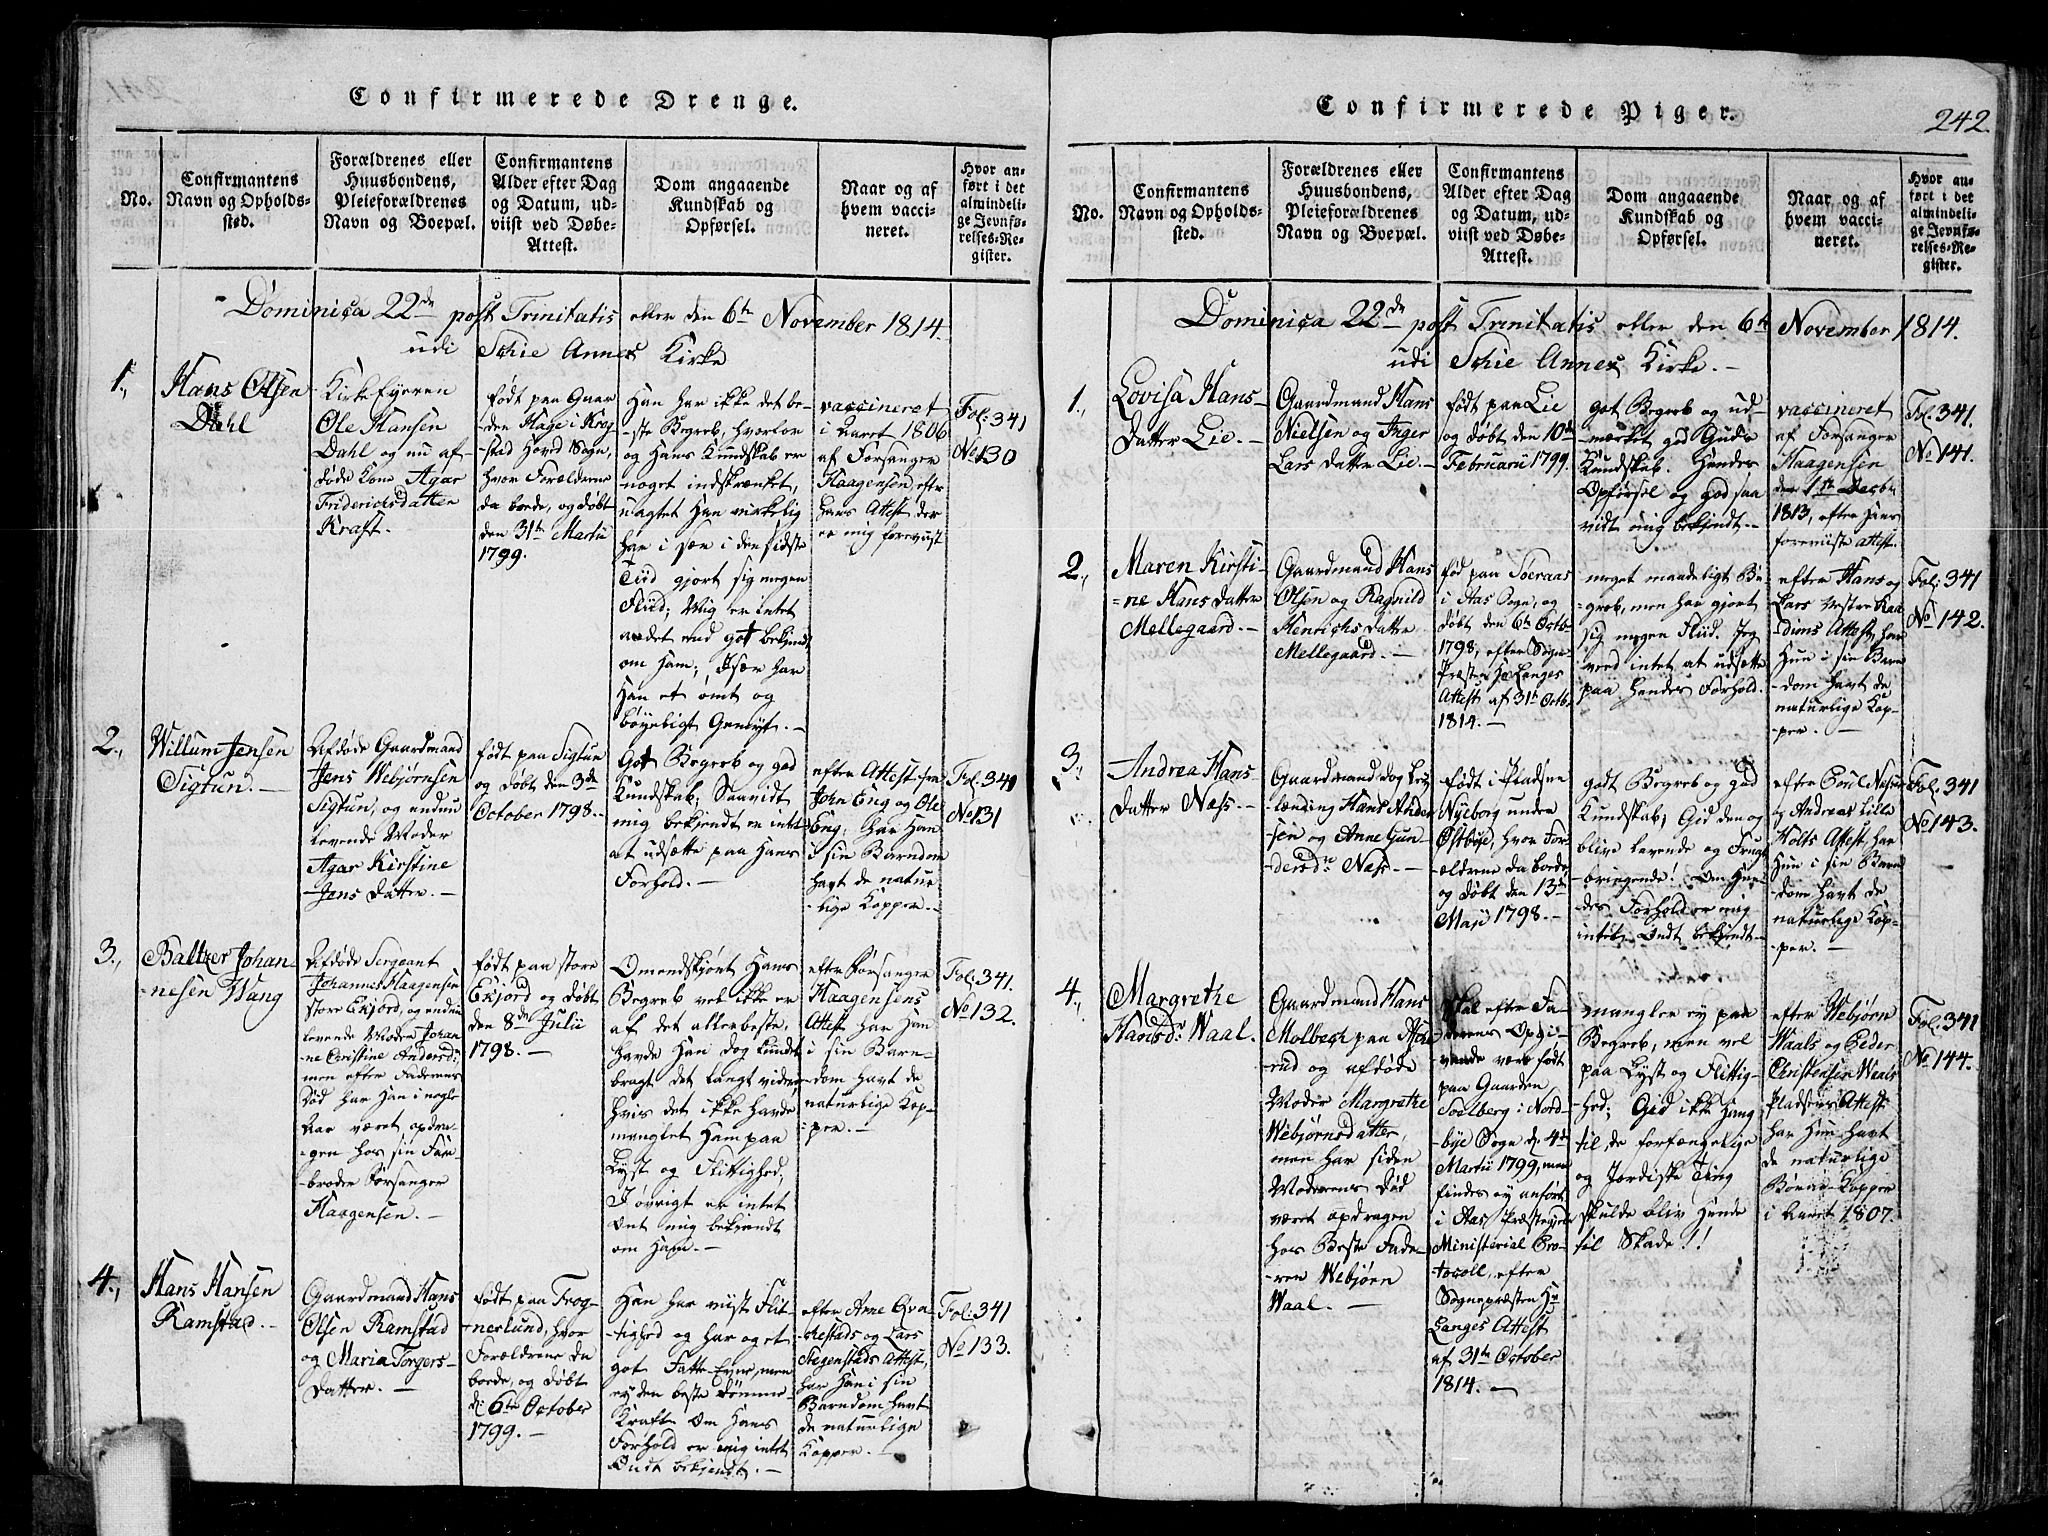 Confirmerede Drenge.
No.
Confirmantens
Navn og Opholds-
sted.
Forældrenes eller
Huusbondens,
Pleieforældrenes
Navn og Boepæl.
Confirmantens
Alder efter Dag
og Datum, ud-
viist ved Døbe-
Attest.
Dom angaaende
Kundskab og
Opførsel.
Naar og af
hvem vacci-
neret.
Hvor an-
ført i det
almindeli-
ge Jevnfø-
relses-Re-
gister.
Dominica 22de post Trinitatis eller den 6te November 1814.
udi Schie Annex Kirke
1.,
Hans Olsen
Dahl
Kirkeeyeren
Ole Hansen
Dahl og nu af-
døde Kone Agar
Friderichsdatter
Kraft.
født paa Gaar-
den Hage i Krog-
stad Hovd Sogn,
hvor Forældrene
da boede, og døbt
den 31te Martii
1799.
Han har ikke det be-
ste Begreb, hvorfor
og Hans Kundskab er
noget indskrænket,
uagtet Han virkelig
har i sær i den sidste
Tiid gjort sig megen
Fliid; Mig er intet
andet end got bekjendt
om Ham; Især har
Han et ømt og
bøyeligt Gemyt. -
vaccineret
i Aaret 1806
af Forsanger
Haagensen, efter
Hans Attest, der
er mig foreviist
Fol: 341
No 130
2.,
Willum Jensen
Sigtun. -
Afdøde Gaardmand
Jens Webjørnsen
Sigtun, og endnu
levende Moder
Agar Kirstine
Jens Datter. -
født paa Sigtun
og døbt den 3de
October 1798. -
Got Begreb og god
Kundskab; Saavidt
mig bekjendt er intet
at udsætte paa Hans
Forhold. -
efter Attest fra
John Eng og Ole
Eng, har Han
i sin Barndom
havt de natur-
-lige Kopper. -
Fol: 341
No 131
3.,
Baltzer Johan-
-nesen Wang
Afdøde Sergeant
Johannes Haagensen
store Ekjord, og endnu
levende Moder Johan-
ne Christine Andersd:
men efter Faderens
Død har Han i nogle
Aar været opdra-
-gen hos sin Far-
-broder Forsanger
Haagensen. -
født paa store
Ekjord og døbt
den 8de Julii
1798. -
Omendskjønt Hans
Begreb vel ikke er
af det allerbeste,
havde Han dog kundet
bragt det langt videre,
hvis det ikke havde
manglet Ham paa
Lyst og Flittighed,
I øvrigt er intet
Ont mig bekjendt
om Ham. -
efter Forsanger
Haagensens
Attest har Han
i sin Barn-
-dom havt de
naturlige Kop-
-per. -
Fol: 341.
No 132.
4.,
Hans Hansen
Ramstad. -
Gaardmand Hans
Olsen Ramstad
og Maria Torgers-
Datter. -
født paa Frog-
-nerlund, hvor
Forældrene da
boede, og døbt
d: 6te October
1799. -
Han har viist Flit-
-tighed og har og et
got Fatte-Evne, men
ey den beste Dømme-
Kraft. Om Hans
Forhold er mig intet
Ondt bekjendt. -
efter Arne Qva-
-kestads og Lars
Stegenstads Attest,
har Han i sin
Barndom havt
de naturlige
Kopper. -
Fol: 341
No 133.
Confirmerede Piger.
242.
No.
Confirmantens
Navn og Opholds-
sted.
Forældrenes eller
Huusbondens,
Pleieforældrenes
Navn og Boepæl.
Confirmantens
Alder efter Dag
og Datum, ud-
viist ved Døbe-
Attest.
Dom angaaende
Kundskab og
Opførsel.
Naar og af
hvem vacci-
neret.
Hvor an-
ført i det
almindeli-
ge Jevnfø-
relses-Re-
gister.
Dominica 22de post Trinitatis eller den 6te November 1814.
udi Schie Annex Kirke. -
1.,
Lovisa Hans-
Datter Lie. -
Gaardmand Hans
Nielsen og Inger
Lars Datter Lie. -
født paa Lie
og døbt den 10de
Februarii 1799.
got Begreb og ud-
-mærket god Guds
Kundskab. Hendes
Opførsel og god saa
vidt mig bekjendt. -
vaccineret
af Forsanger
Haagensen
den 1ste Decbr
1813, efter Hans
foreviiste Attest.
Fol: 341.
No 141.
2.,
Maren Kirsti-
-ne Hans Datter
Mellegaard. -
Gaardmand Hans
Olsen og Ragnild
Henrichs Datter
Mellegaard. -
fød paa Søeraas
i Aas Sogn, og
døbt den 6te Octb
1798, efter Sogne
Præsten Hr Langes
Attest af 31te Octb
1814. -
meget maadeligt Be-
-greb, men har gjort
sig megen Fliid. Jeg
veed intet at udsætte
paa Hendes Forhold.
efter Hans og
Lars Vestre Raa-
dums Attest, har
Hun i sin Barn-
-dom havt de
naturlige Kop-
-per. -
Fol: 341
No 142.
3.,
Andrea Hans
Datter Næss. -
Gaardmand og Ley-
lænding Hans Ander-
sen og Anne Gun-
-dersdr Næss. -
født i Pladsen
Nyeborg under
Østbye, hvor For-
ældrene da boede,
og døbt den 13de
Maji 1798. -
godt Begreb og god
Kundskab; Gid den og
blive levende og Frugt-
bringende! Om Hen-
des Forhold er mig
intet Ondt bekjendt. -
efter Poul Næsse
og Andreas Lille
Holts Attest, har
Hun i sin Barn-
-dom havt de
naturlige Kop-
-per. -
Fol: 341
No 143.
4.,
Margrethe
Hansdr Waal.
Gaardmand Hans
Molbech paa Ache-
rud og afdøde
Moder Margrethe
Webjørnsdatter,
men har siden
Moderens Død
været opdragen
hos Beste Fade-
-ren Webjørn
Waal. -
Skal efter Fa-
derens Opgi-
vende være født
paa Gaarden
Soelberg i Nord-
bye Sogn d: 4de
Martii 1799, men
findes ey anført
i Aas Præstegjelds
Ministerial Pro-
tocoll, efter
Sognepræsten Hr
Langes Attest
af 31te October
1814. -
mangler ey paa
Begreb, men vel
paa Lyst og Flittig-
-hed; Gid ikke Hang
til de forfængelige
og Jordiske Ting
skulde bliv Hende
til Skade!!
efter Webjørn
Waals og Peder
Christensen Waals
Pladsens Attest
har Hun havt
de naturlige
Børne-Kopper
i Aaret 1807.
Fol: 341
No 144.